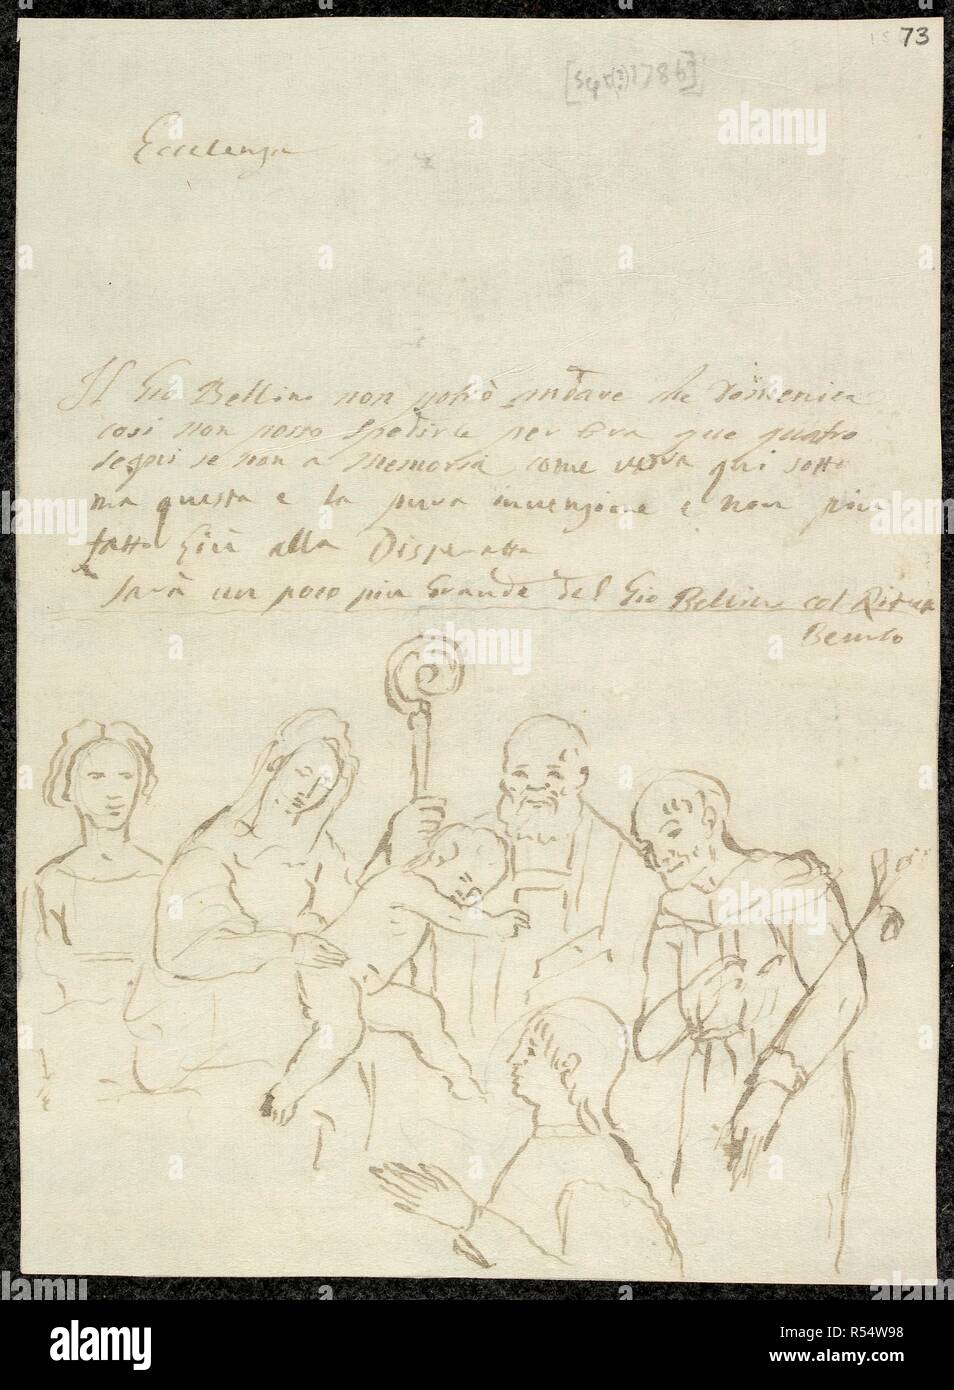 73
[Sept(?) 1786]
Eccelenza
Il Gio Bellino non potrò andare che Domenica
cosi non posso spedirle per Ora que quatro
segni se non a Memoria come vedrà qui sotto
ma questa e la pura invenzione e non più
fatto Giù alla Disperatta
Sarà un poco piu Grande del Gio Bellino col
alamy
alamy stock photo
Image ID: R54W98
www.alamy.com